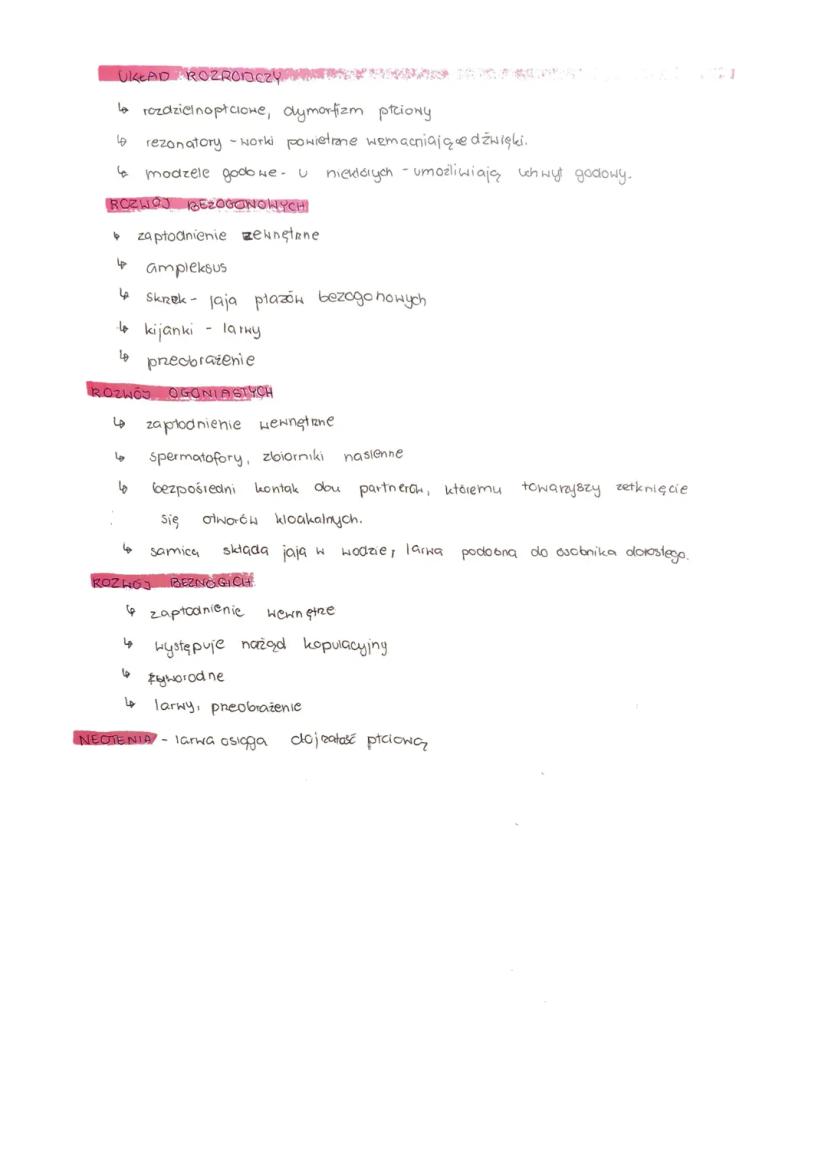 UKŁAD ROZRODCZY
↳ rozdzielnopłciowe, dymorfizm płciowy
↳ rezonatory - worki powietrzne wzmacniające dźwięki.
↳ modzele godowe - u niektórych - umożliwiają uchwyt godowy.
ROZWÓJ BEZOGONOWYCH
↳ zapłodnienie zewnętrzne
↳ ampleksus
↳ skrzek - jaja płazów bezogonowych
↳ kijanki - larwy
↳ przeobrażenie
ROZWÓJ OGONIASTYCH
↳ zapłodnienie wewnętrzne
↳ spermatofory, zbiorniki nasienne
↳ bezpośredni kontak obu partnerów, któremu towarzyszy zetknięcie
się otworów kloakalnych.
↳ samica składa jaja w wodzie, larwa podobna do osobnika dorosłego.
ROZWÓJ BEZNOGICH
↳ zapłodnienie wewnętrze
↳ występuje narząd kopulacyjny
↳ żyworodne
↳ larwy, przeobrażenie
NEOTENIA - larwa osiąga dojrzałość płciową